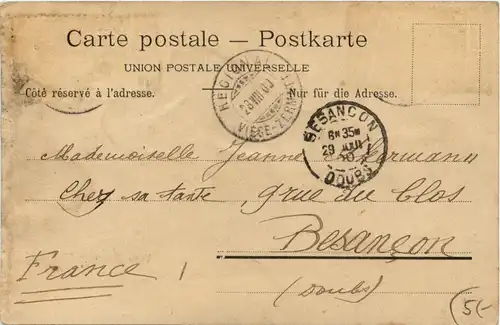 Carte postale — Postkarte
UNION POSTALE UNIVERSELLE
Côté réservé à l'adresse. Nur für die Adresse.
BESANÇON
29 AOUT
DOUBS
Mademoiselle Jeanne
Chez sa tante, 9 rue du Clos
Besançon
France
(Doubs)
(5.-